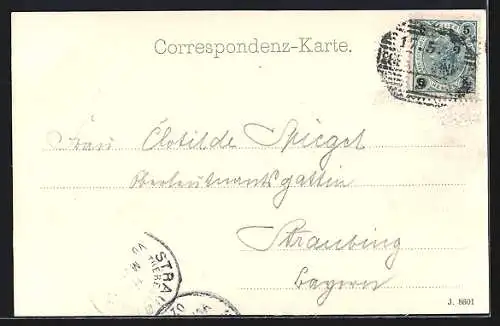 Correspondenz-Karte.
5
17.5.
Frau Clotilde Spiegel
Oberleutnantsgattin
Straubing
Bayern
STRA
J. 8801